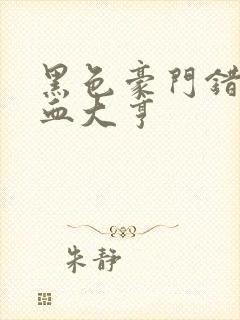 黑色豪門錯
血大亨
朱靜